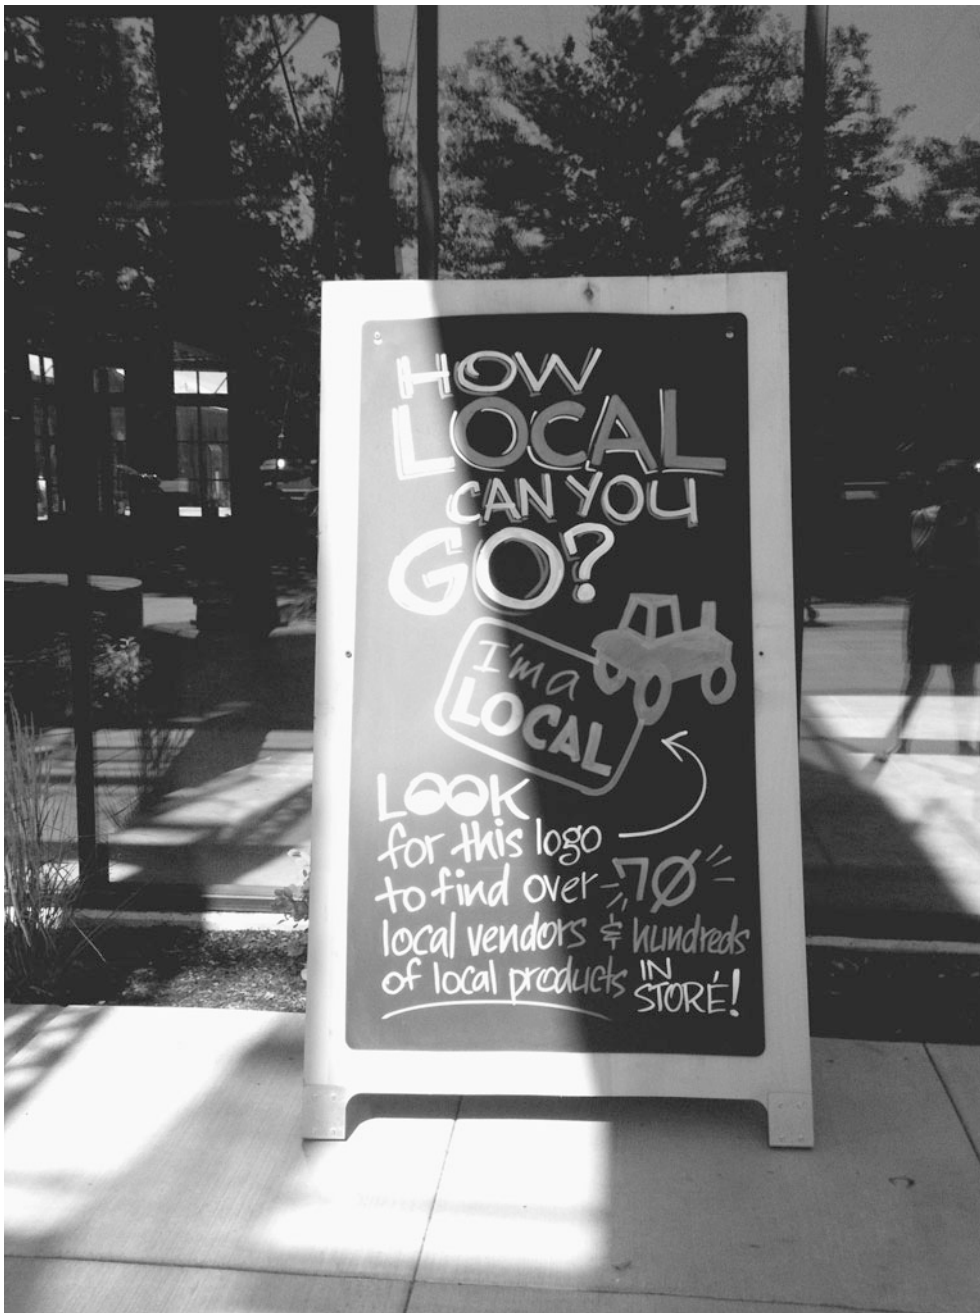 HOW
LOCAL
CAN YOU
GO?
I'm a
LOCAL
LOOK
for this logo
to find over 70
local vendors & hundreds
of local products IN
STORE!